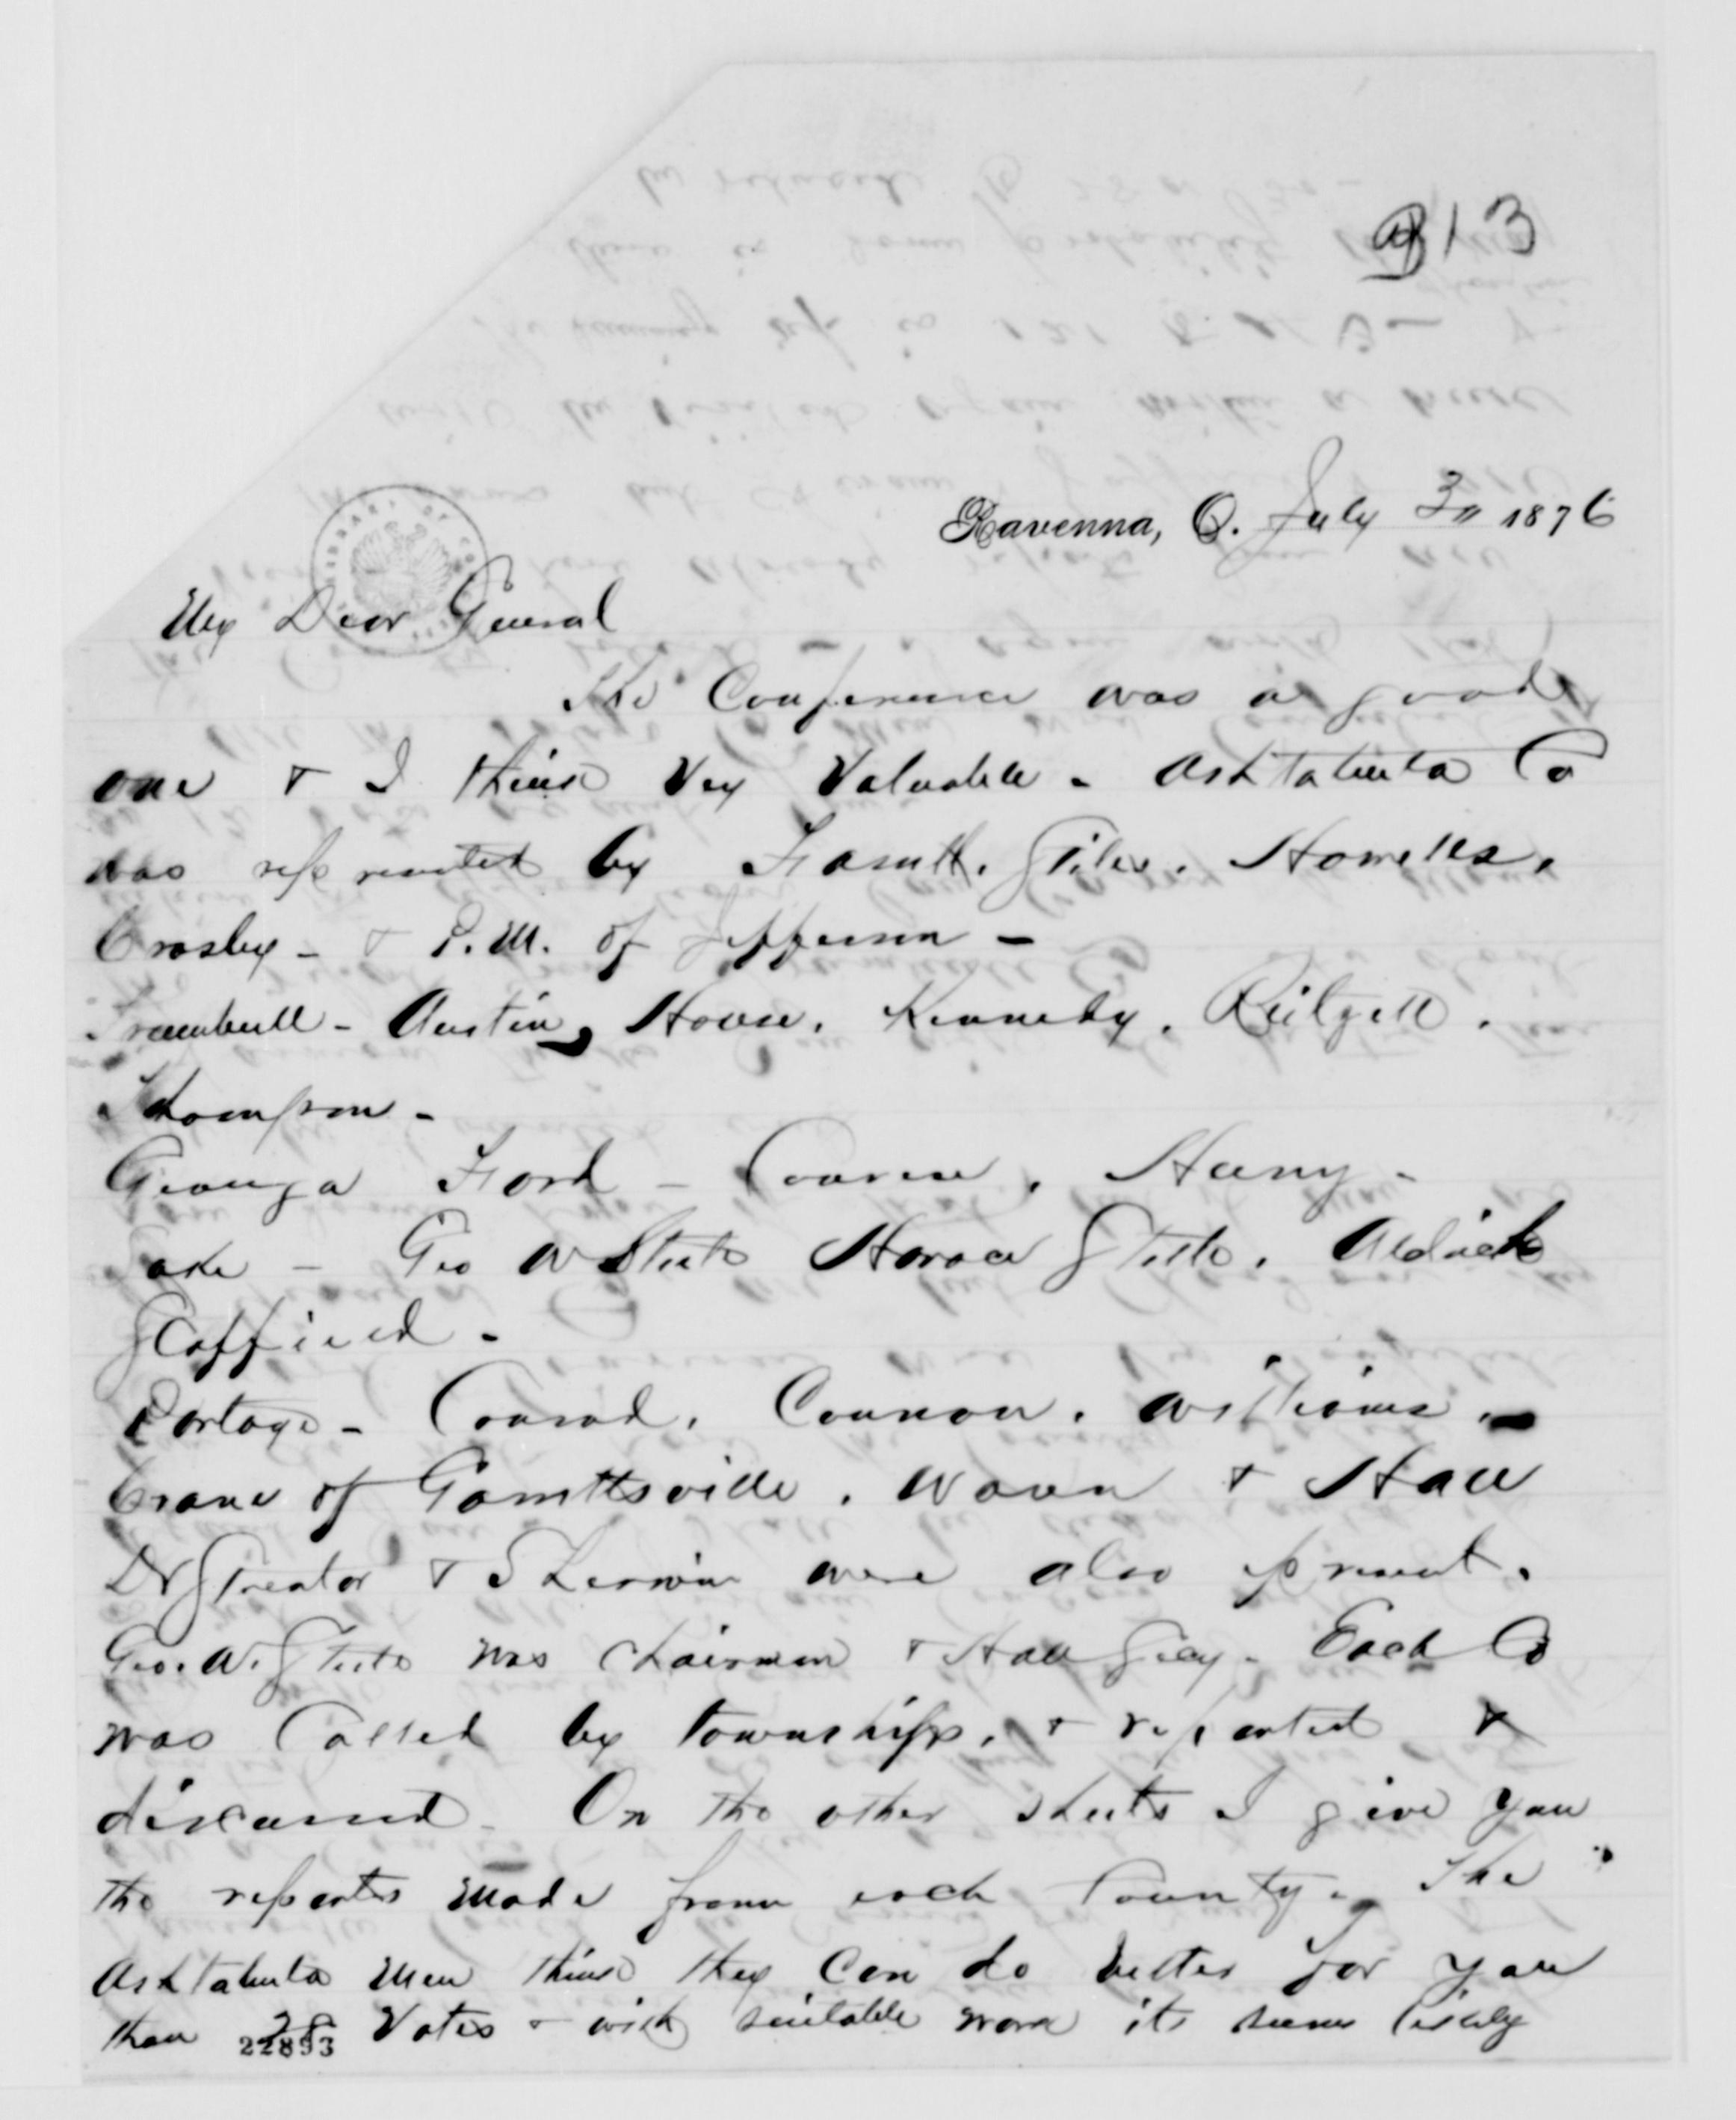 313
Ravenna, O. July 3" 1876
My Dear General
The Conference was a good
one & I think very valuable - Ashtabula Co
was represented by Giles. Howells,
Crosby - & P.M. of Jefferson -
Trumbull - Austin, House. Kennedy.
Thompson -
Geauga Ford -
Lake - Geo W Steele Horace Steele.
Scoffield -
Portage - Conrad. Cannon. Williams. -
Crane of Garrettsville. & Hall
Dr Streator & Sherwin were also present.
Geo. W. Steele was chairman & Hall Secy - Each Co
was called by townships, & reported &
discussed - On the other sheets I give you
the reports made from each County - The
Ashtabula men think they can do better for you
than 28 votes & with suitable work its seems likely
22893